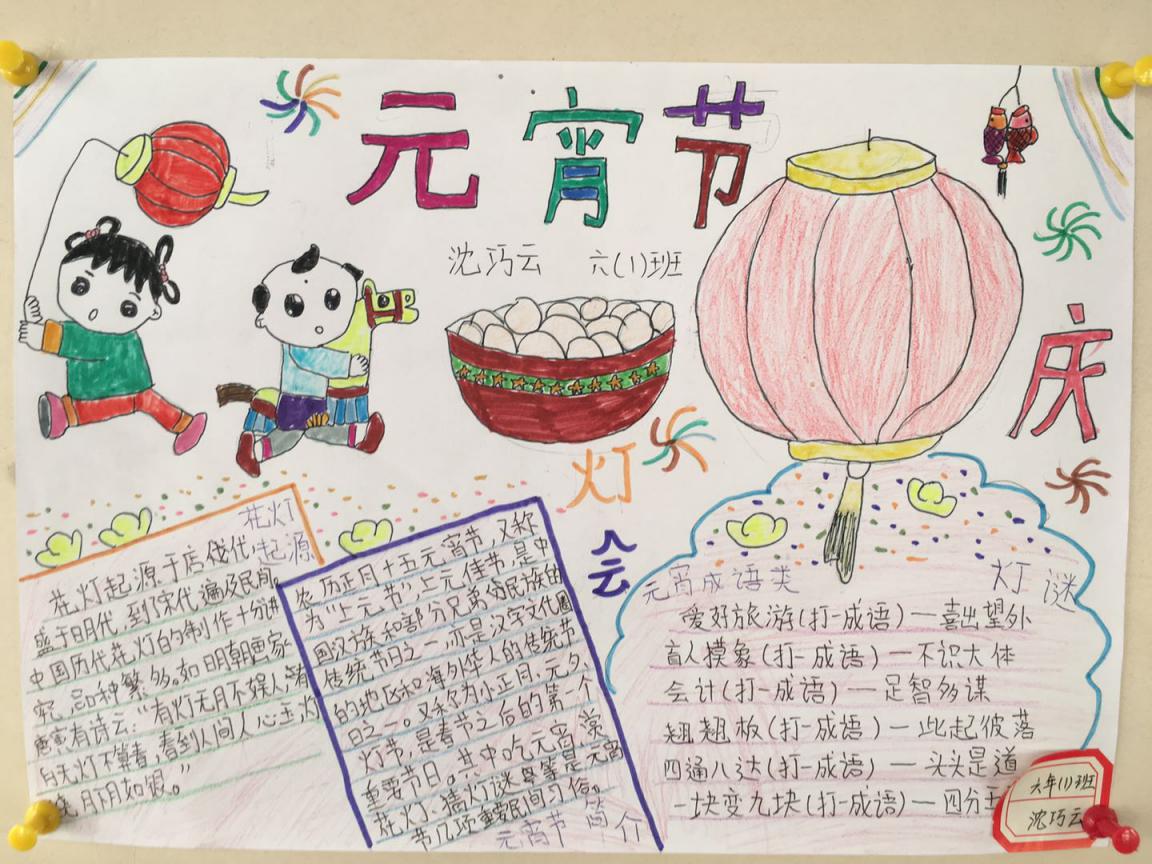 元宵节
沈巧云 六(1)班
庆
灯
会
花灯
起源
花灯起源于
盛于明代,到宋代遍及民间.
中国历代花灯的制作十分讲
究,品种繁多。如明朝画家
唐寅有诗云:"有灯无月不娱人,有
月无灯不算春,看到人间人心玉,灯
月下月如银。"
农历正月十五元宵节,又称
为"上元节",上元佳节,是中
国汉族和部分兄弟的民族的
传统节日之一,亦是汉字文化圈
的地区和海外华人的传统节
日之一。又称为小正月、元夕、
灯节,是春节之后的第一个
重要节日。其中吃元宵、赏
花灯、猜灯谜等是元宵
节几项重要民间习俗。
元宵节简介
元宵成语类 灯谜
爱好旅游(打一成语)一喜出望外
盲人摸象(打一成语)一不识大体
会计(打一成语)一足智多谋
翘翘板(打一成语)一此起彼落
四通八达(打一成语)一头头是道
一块变九块(打一成语)一四分五
六年(1)班
沈巧云